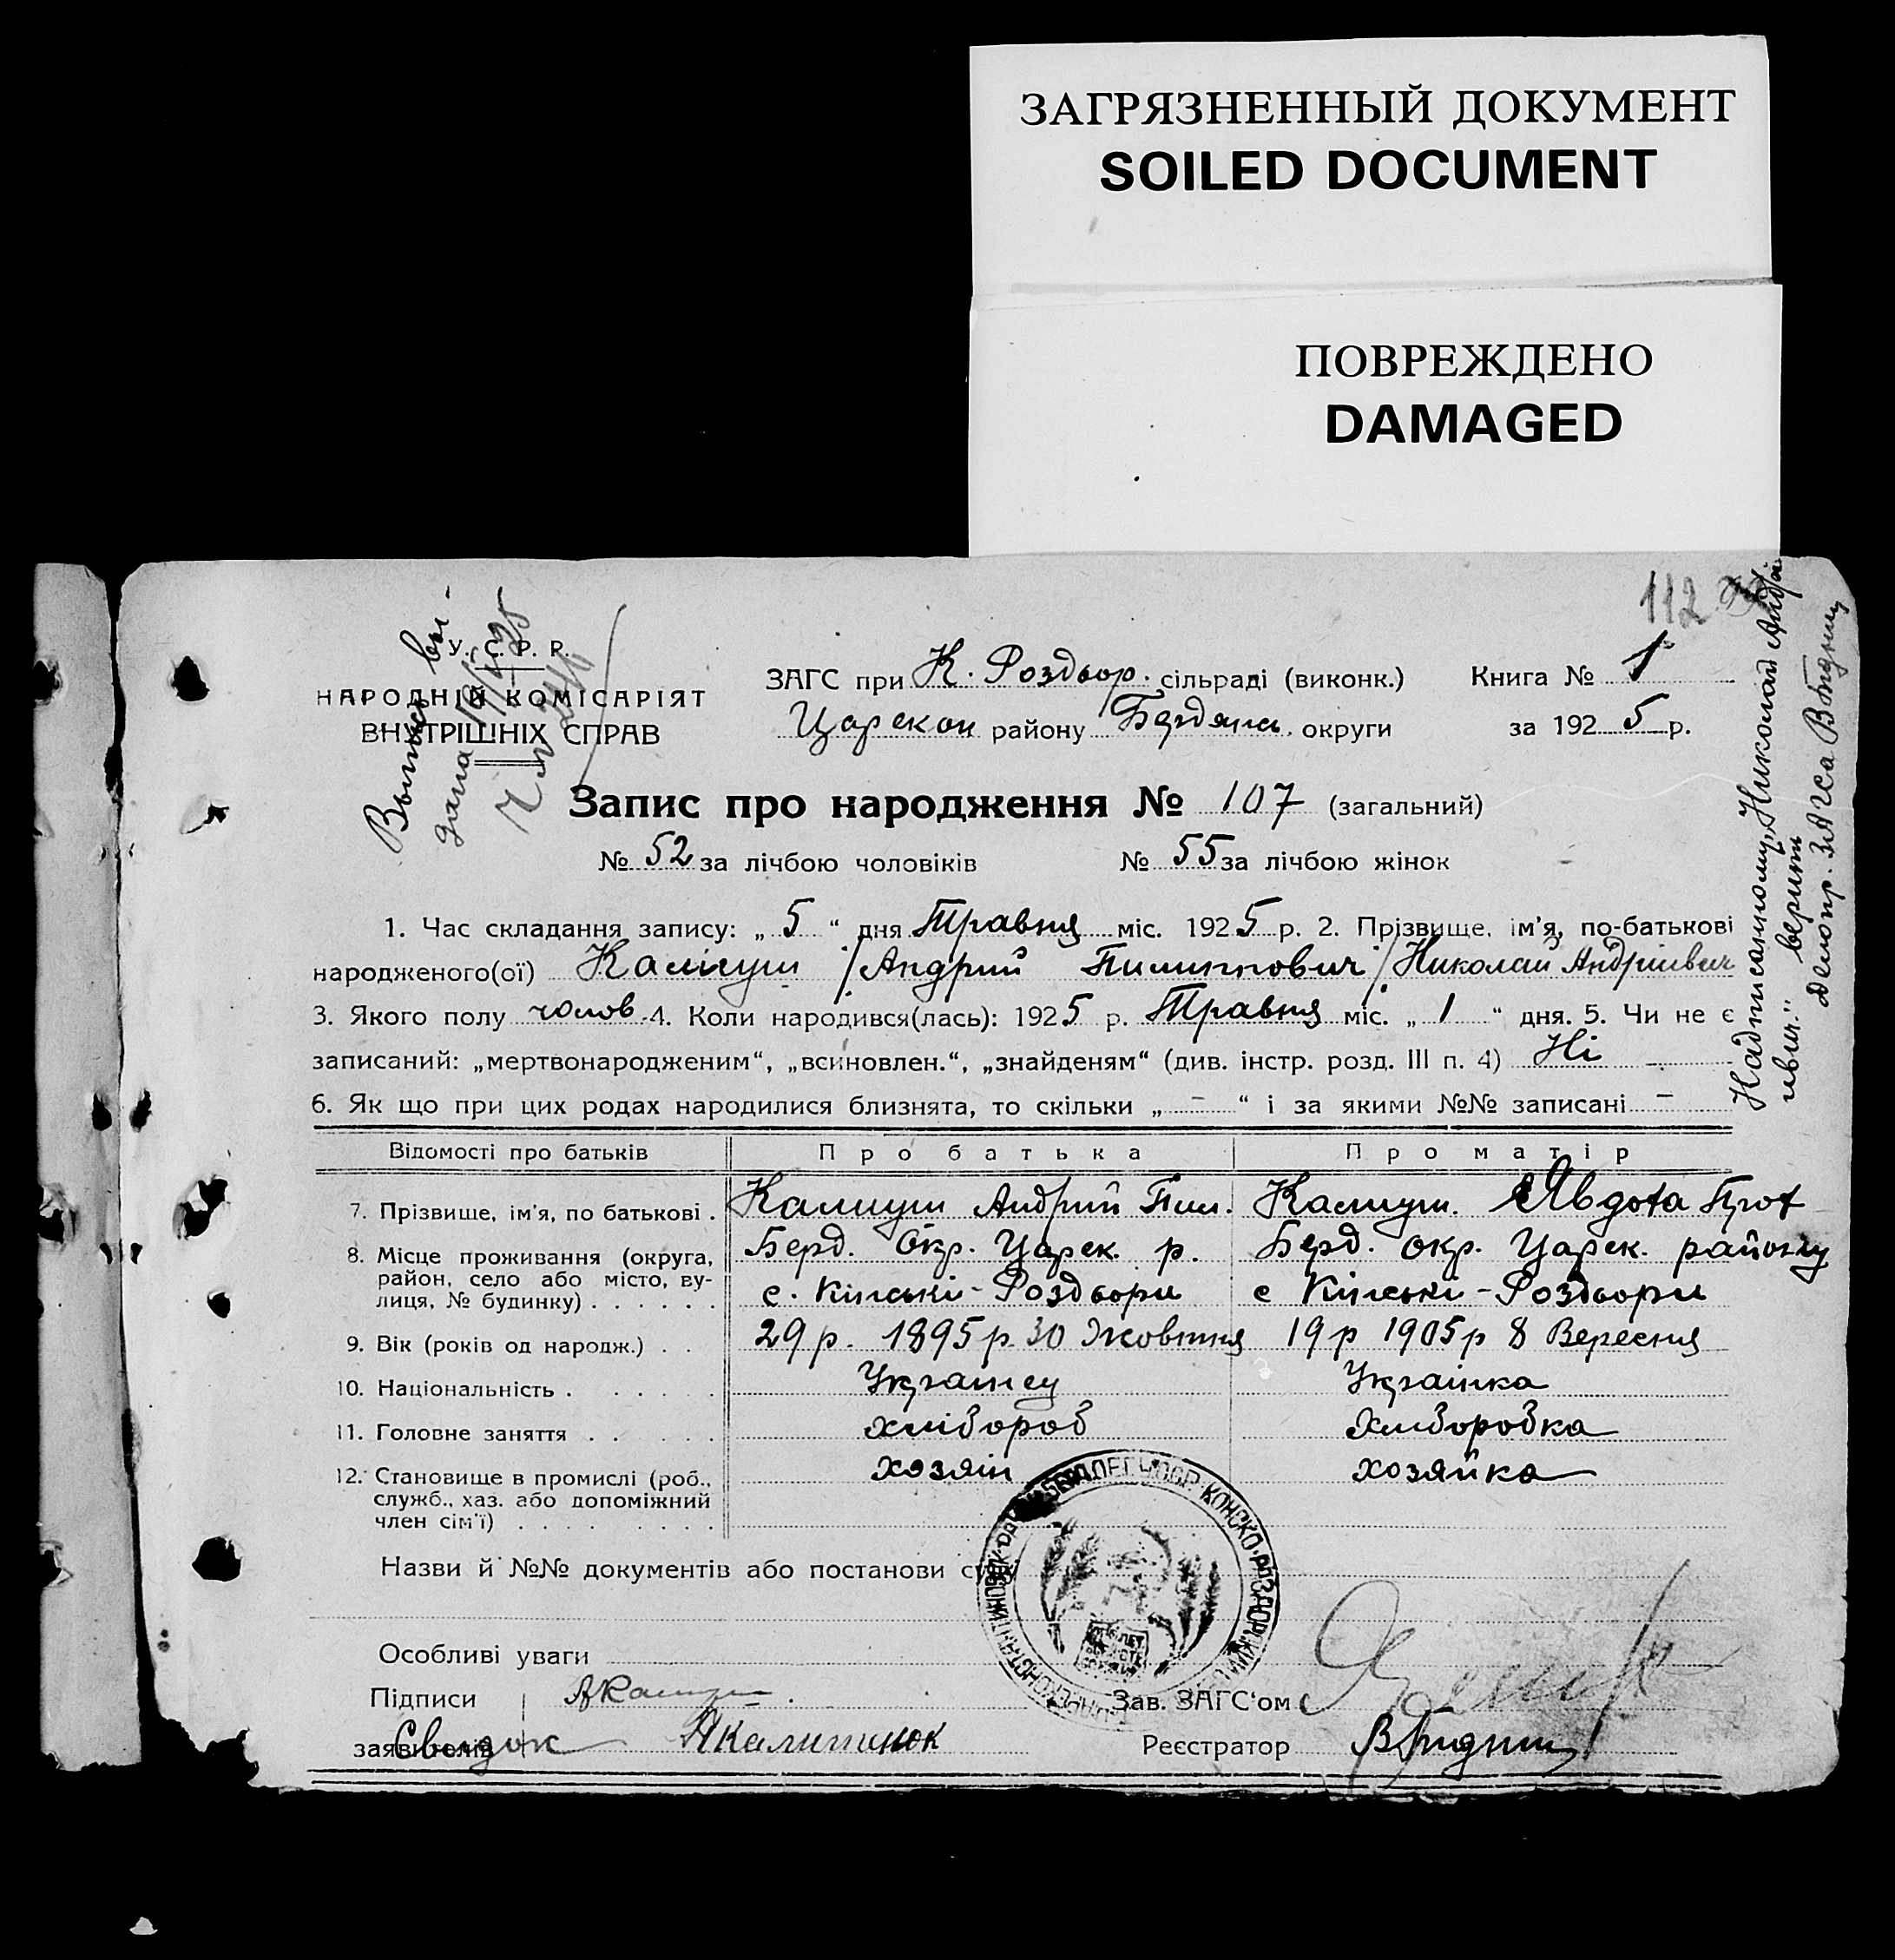 ЗАГРЯЗНЕННЫЙ ДОКУМЕНТ
SOILED DOCUMENT
ПОВРЕЖДЕНО
DAMAGED
112
У. С. Р. Р.
НАРОДНІЙ КОМІСАРІЯТ
ВНУТРІШНІХ СПРАВ
Выпись вы-
дана
ЗАГС при К. Роздор. сільраді (виконк.) Книга № 1
Царекон району Бердянс. округи за 1925 р.
Запис про народження № 107 (загальний)
№ 52 за лічбою чоловіків № 55 за лічбою жінок
1. Час складання запису: „ 5 “ дня Травня міс. 1925 р. 2. Прізвище, ім'я, по-батькові
народженого(ої) Калиуш / Андрий Пилипович / Николай Андріівич
3. Якого полу чолов. 4. Коли народився(лась): 1925 р. Травня міс. „ 1 “ дня. 5. Чи не є
записаний: „мертвонародженим“, „всиновлен.“, „знайденям“ (див. інстр. розд. III п. 4) Ні
6. Як що при цих родах народилися близнята, то скільки „ - “ і за якими №№ записані -
Надписанному „Николай Андрі
ивич.“ верити
Делопр. ЗАГСа
Відомості про батьків Про батька Про матір
7. Прізвище, ім'я, по батькові . Калиуш Андрий Пил. Калиуш. Явдота Прот
8. Місце проживання (округа, Берд. Окр. Царек. р. Берд. окр. Царек. району
район, село або місто, ву- с. Кінські-Роздори с Кінські-Роздори
лиця, № будинку) . . . . . .
9. Вік (років од народж.) . . 29 р. 1895 р. 30 Жовтня 19 р 1905 р 8 Вересня
10. Національність . . . . . Українец Украінка
11. Головне заняття . . . . . хлібороб Хлиборобка
12. Становище в промислі (роб., хозяін хозяйка
служб., хаз. або допоміжний
член сім'ї) . . . . . . .
Назви й №№ документів або постанови суду
Особливі уваги
Підписи
Зав. ЗАГС'ом
заявителів Свидок
Реєстратор